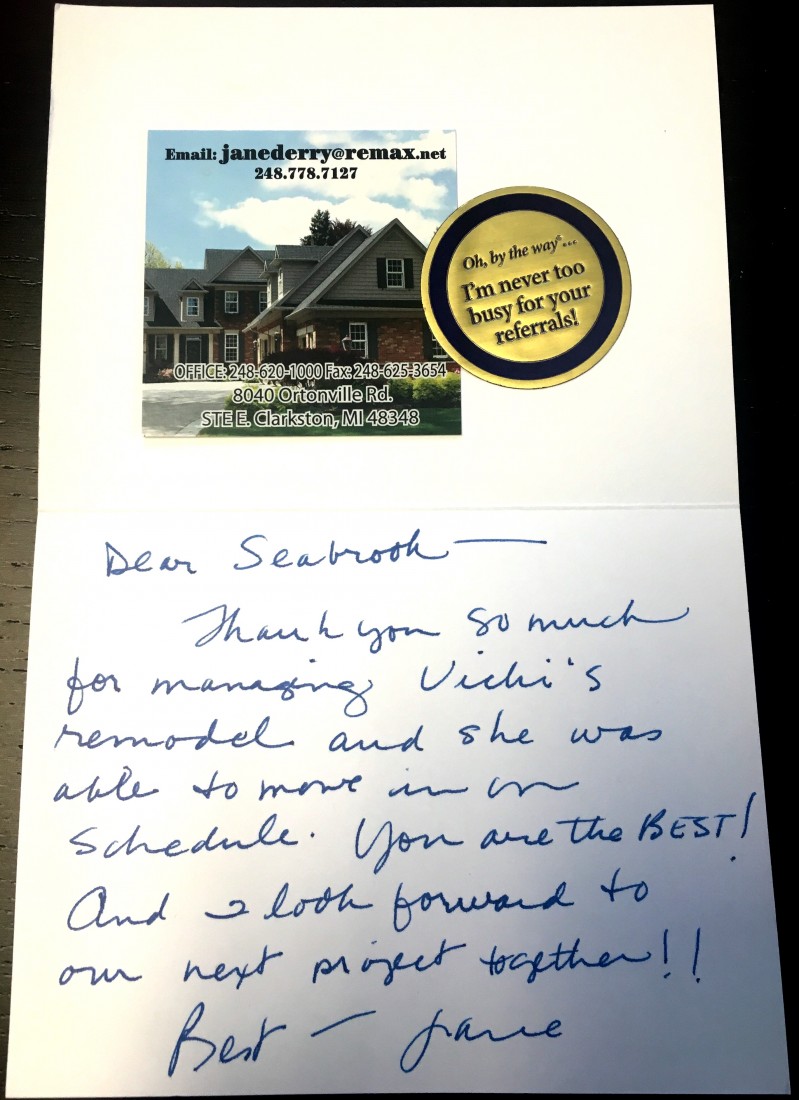 Email: janederry@remax.net
248.778.7127
Oh, by the way®...
I'm never too
busy for your
referrals!
OFFICE: 248-620-1000 Fax: 248-625-3654
8040 Ortonville Rd.
STE E. Clarkston, MI 48348
Dear Seabrook —
Thank you so much
for managing Vicki's
remodel and she was
able to move in on
schedule. You are the BEST!
And I look forward to
our next project together!!
Best — Jane